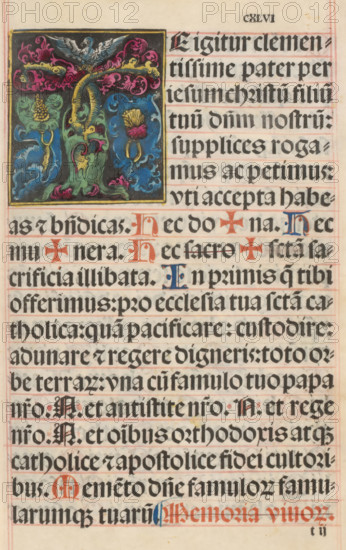 CXLVI
TE igitur clemen-
tissime pater per
iesum christū filiū
tuū dn̄m nostrū:
supplices roga-
mus ac petimus:
vti accepta habe-
as ⁊ bn̄dicas. hec do ✠ na. hec
mu ✠ nera. hec sacro ✠ sctā sa-
crificia illibata. In primis q̄ tibi
offerimus: pro ecclesia tua sctā ca-
tholica: quā pacificare: custodire:
adunare ⁊ regere digneris: toto or-
be terrarꝝ: vna cū famulo tuo papa
nr̄o: N. et antistite nr̄o. N. et rege
nr̄o. N. et oībus orthodoxis atqꝫ
catholice ⁊ apostolice fidei cultori-
bus. Memēto dn̄e famulorꝝ famu-
larumqꝫ tuarū Memoria viuorꝝ.
t ij